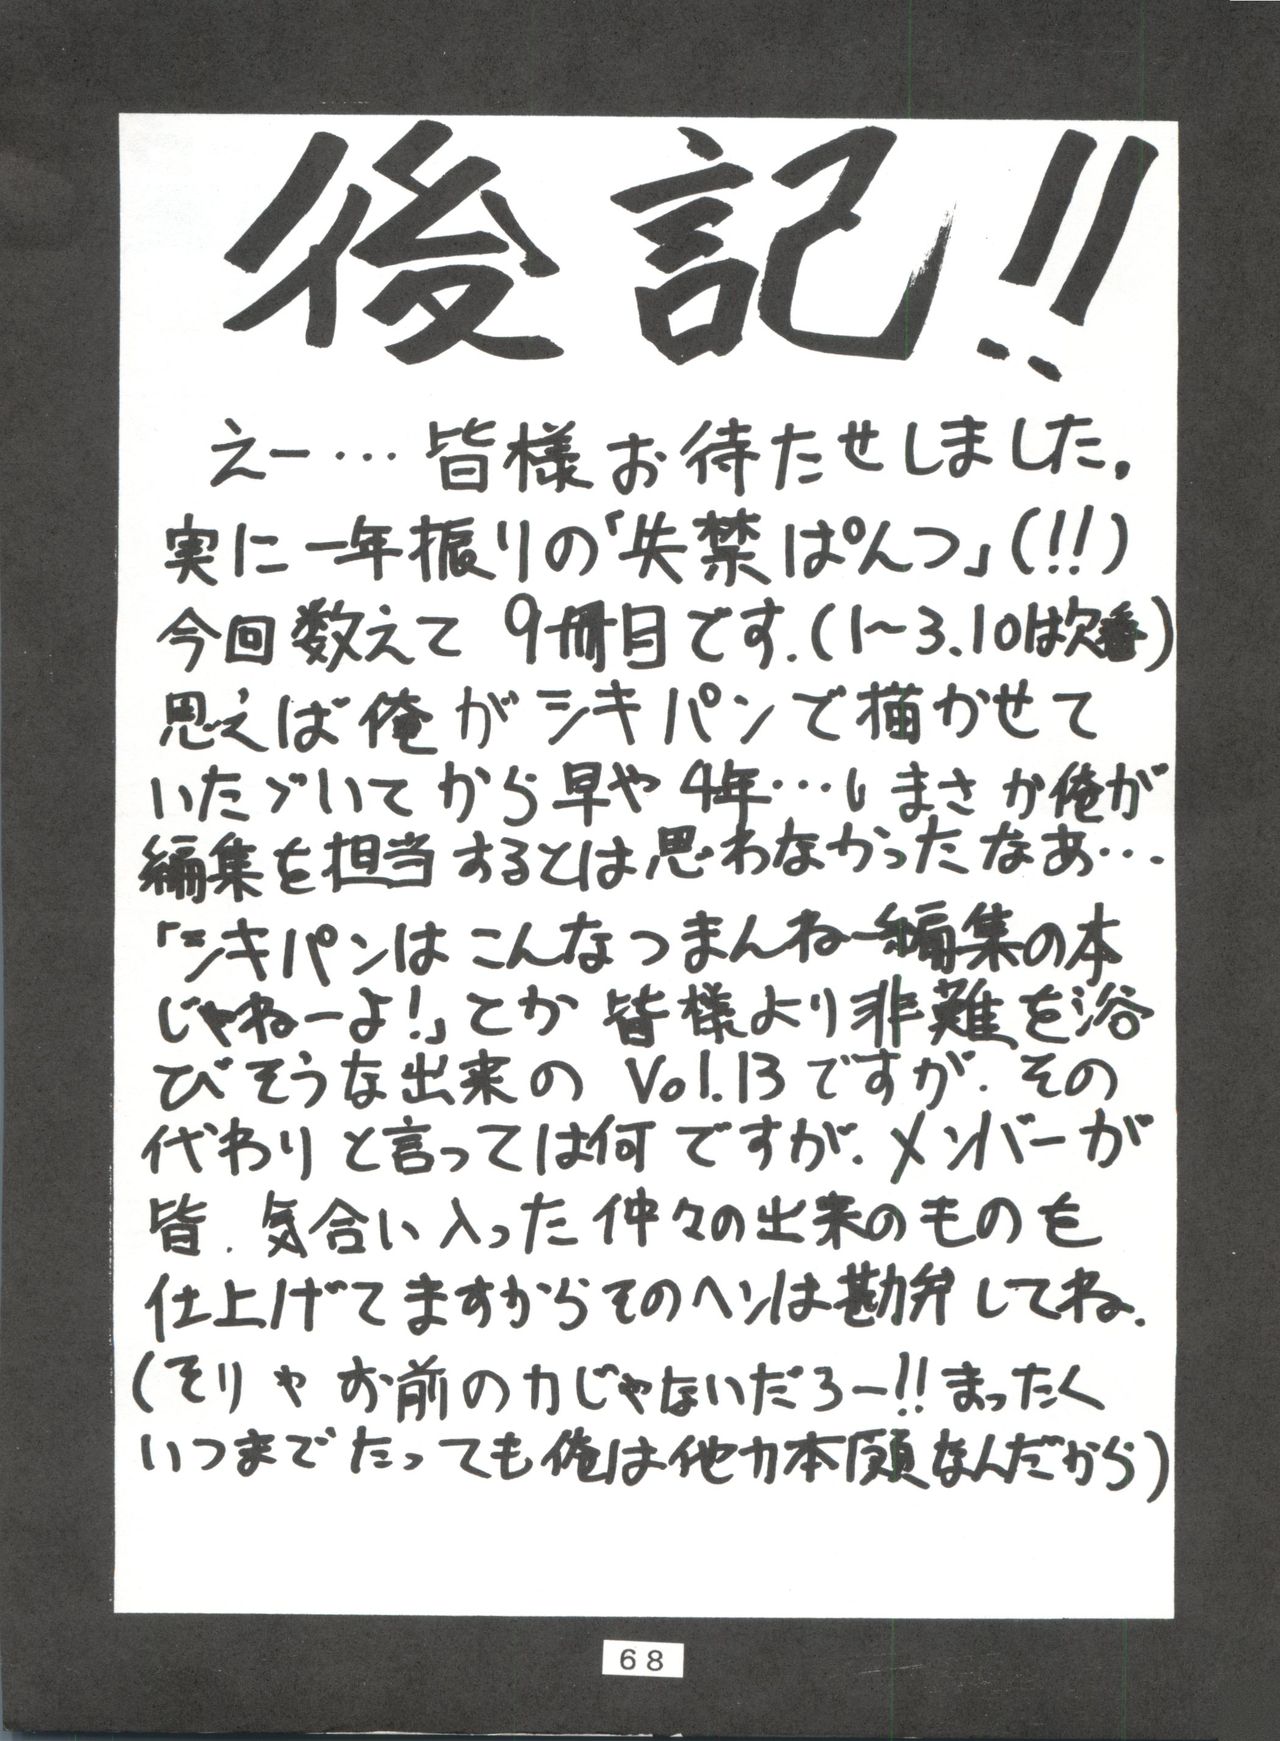 後記!!
えー…皆様お待たせしました。
実に一年振りの「失禁ぱんつ」(!!)
今回数えて9冊目です.(1〜3.10は欠番)
思えば俺がシキパンで描かせて
いたゞいてから早や4年…しまさか俺が
編集を担当するとは思わなかったなあ…
「シキパンはこんなつまんねー編集の本
じゃねーよ!」とか皆様より非難を浴
びそうな出来のVol.13ですが.その
代わりと言っては何ですが.メンバーが
皆.気合い入った仲々の出来のものを
仕上げてますからそのヘンは勘弁してね.
(そりゃお前の力じゃないだろー!!まったく
いつまでたっても俺は他力本願なんだから)
68